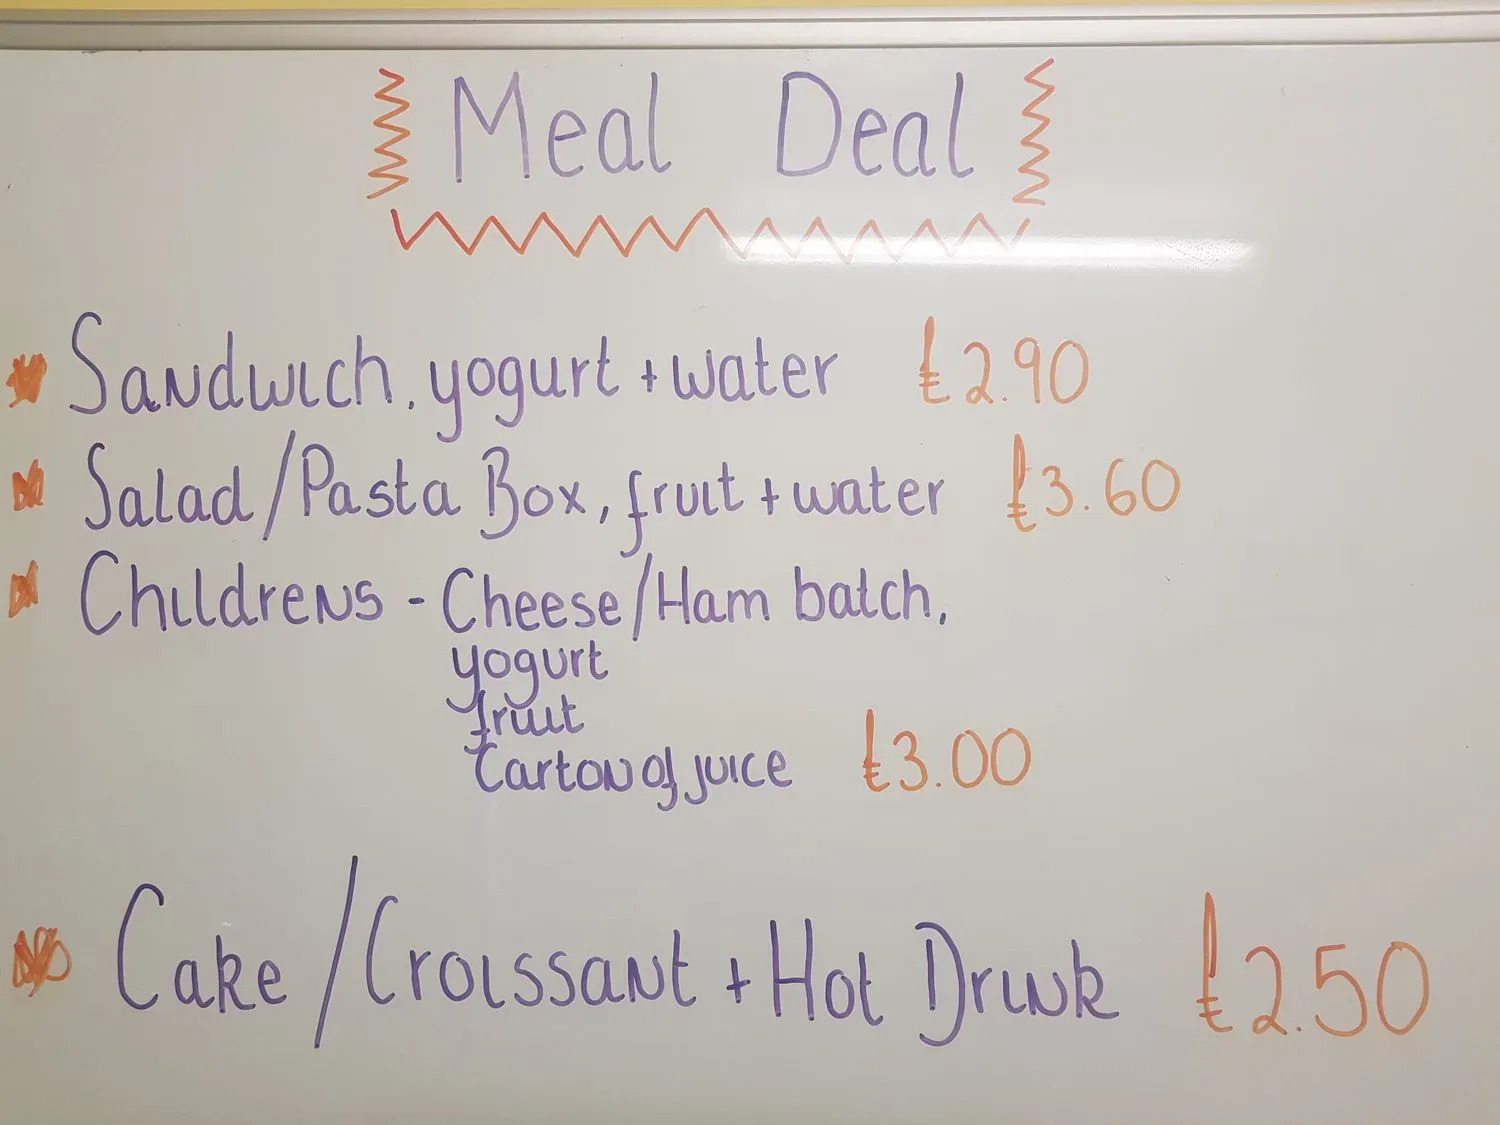 Meal Deal
Sandwich, yogurt + water £2.90
Salad/Pasta Box, fruit + water £3.60
Childrens - Cheese/Ham batch,
yogurt
fruit
Carton of juice £3.00
Cake/Croissant + Hot Drink £2.50